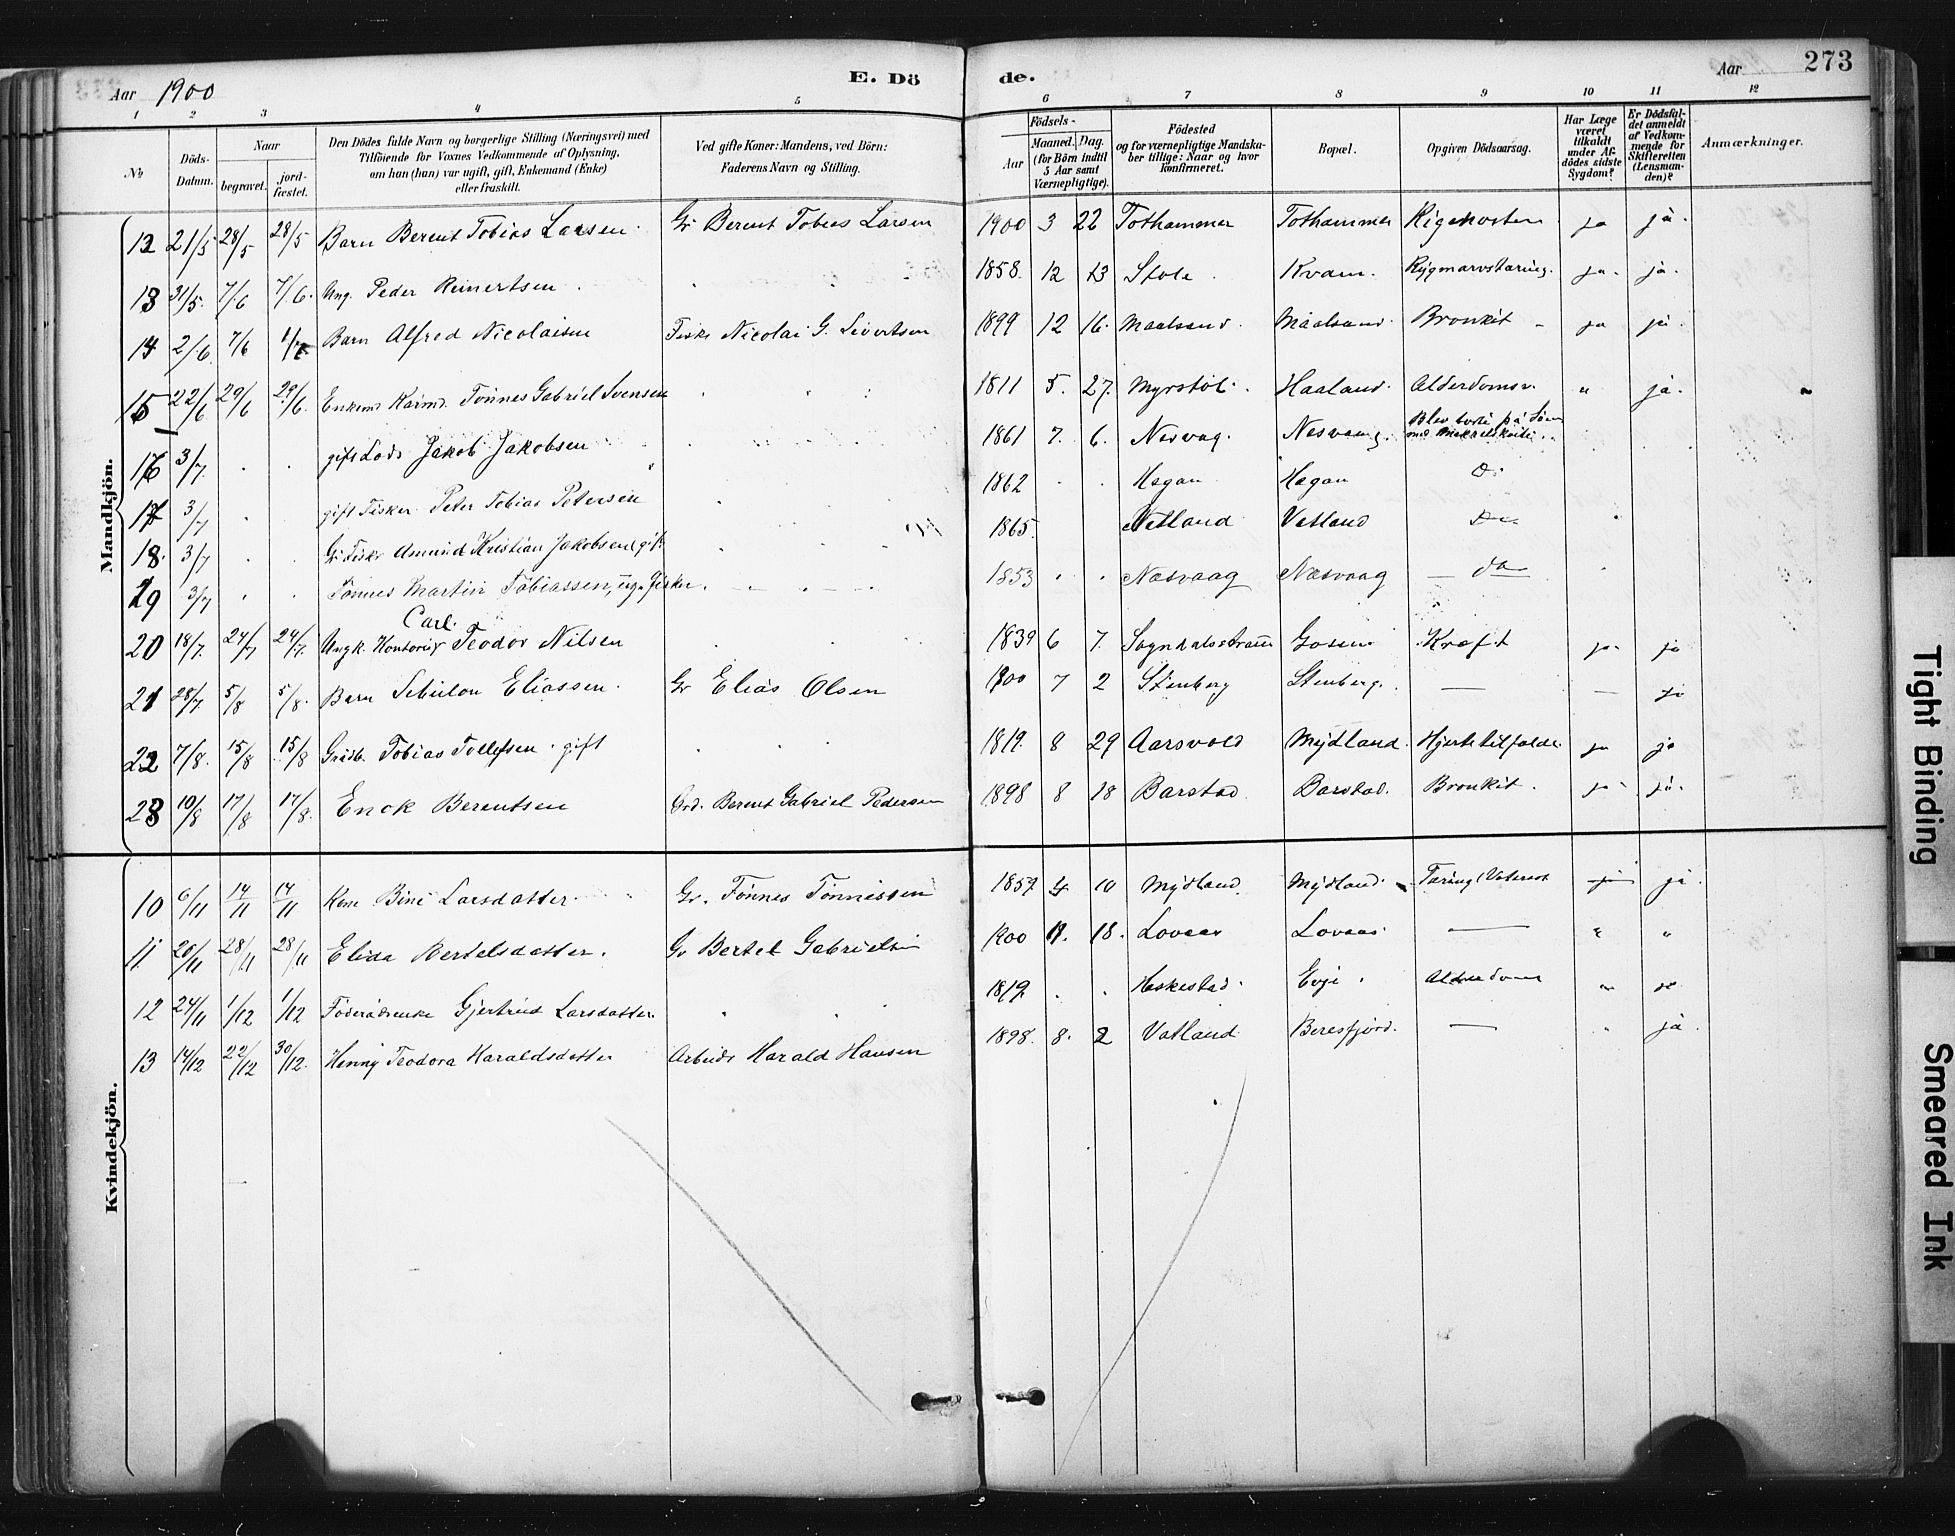 Aar 1900
E. Dö
de.
Aar
273
1 2 3 4 5 6 7 8 9 10 11 12
№
Döds-Datum.
Naar
begravet.
jord-fæstet.
Den Dödes fulde Navn og borgerlige Stilling (Næringsvei) med
Tilföiende for Voxnes Vedkommende af Oplysning,
om han (hun) var ugift, gift, Enkemand (Enke)
eller fraskilt.
Ved gifte Koner: Mandens, ved Börn:
Faderens Navn og Stilling.
Födsels-
Aar
Maaned. Dag.
(for Börn indtil
5 Aar samt
Værnepligtige).
Födested
og for værnepligtige Mandska-
ber tillige: Naar og hvor
konfirmeret.
Bopæl.
Opgiven Dödsaarsag.
Har Læge
været
tilkaldt
under Af-
dödes sidste
Sygdom?
Er Dödsfal-
det anmeldt
af Vedkom-
mende for
Skifteretten
(Lensman-
den)?
Anmærkninger.
Mandkjön.
12 21/5 28/5 28/5 Barn Berent Tobias Larsen Gr Berent Tobias Larsen 1900 3 22 Tothammer Tothammer Kigehoste ja ja
13 31/5 7/6 7/6 Ung. Peder Reinertsen 1858 12 13 Stole Kvam Rygmarvstæring ja ja
14 2/6 7/6 Barn Alfred Nicolaisen Fisker Nicolai G. Sivertsen 1899 12 16 Maalsund Maalsund Bronkit ja ja
15 22/6 29/6 29/6 Enkemd Tönnes Gabriel Svensen 1811 5 27 Myrstöl Haaland Alderdomsv. " ja
16 3/7 gift Lods Jakob Jakobsen 1861 7 6 Nesvag Nesvaag Blev borte på Söen med
17 3/7 gift Fisker Peter Tobias Petersen 1862 Hegan Hegan Do
18 3/7 Gr Fisker Amund Kristian Jakobsen, gift 1865 Vatland Vatland Do
19 3/7 Tönnes Martin Tobiassen, ug. Fisker 1853 Næsvaag Næsvaag do
20 18/7 24/7 24/7 Ungk. Carl Teodor Nilsen 1839 6 7 Sogndalsstrand Kræft ja ja
21 28/7 5/8 5/8 Barn Sebulon Eliassen Gr Elias Olsen 1900 7 2 Stenberg Stenberg — — ja
22 7/8 15/8 15/8 Grdb. Tobias Tollefsen gift 1819 8 29 Aarsvold Mydland Hjertetilfælde ja ja
23 10/8 17/8 17/8 Enok Berentsen Grd. Berent Gabriel Pedersen 1898 8 18 Barstad Barstad Bronkit ja ja
Kvindekjön.
10 6/11 14/11 14/11 Kone Bine Larsdatter Gr. Tönnes Tönnessen 1857 10 Mydland Mydland Tæring ja ja
11 20/11 28/11 28/11 Elida Bertelsdatter Gr Bertel Gabrielsen 1900 11 18 Lovaas Lovaas — " "
12 24/11 1/12 1/12 Föderådsenke Gjertrud Larsdatter 1819 Heskestad Evje Alderdom " ja
13 14/12 22/12 30/12 Henny Teodora Haraldsdatter Arbeider Harald Hansen 1898 8 2 Vatland Beresfjord — " ja
Tight Binding
Smeared Ink